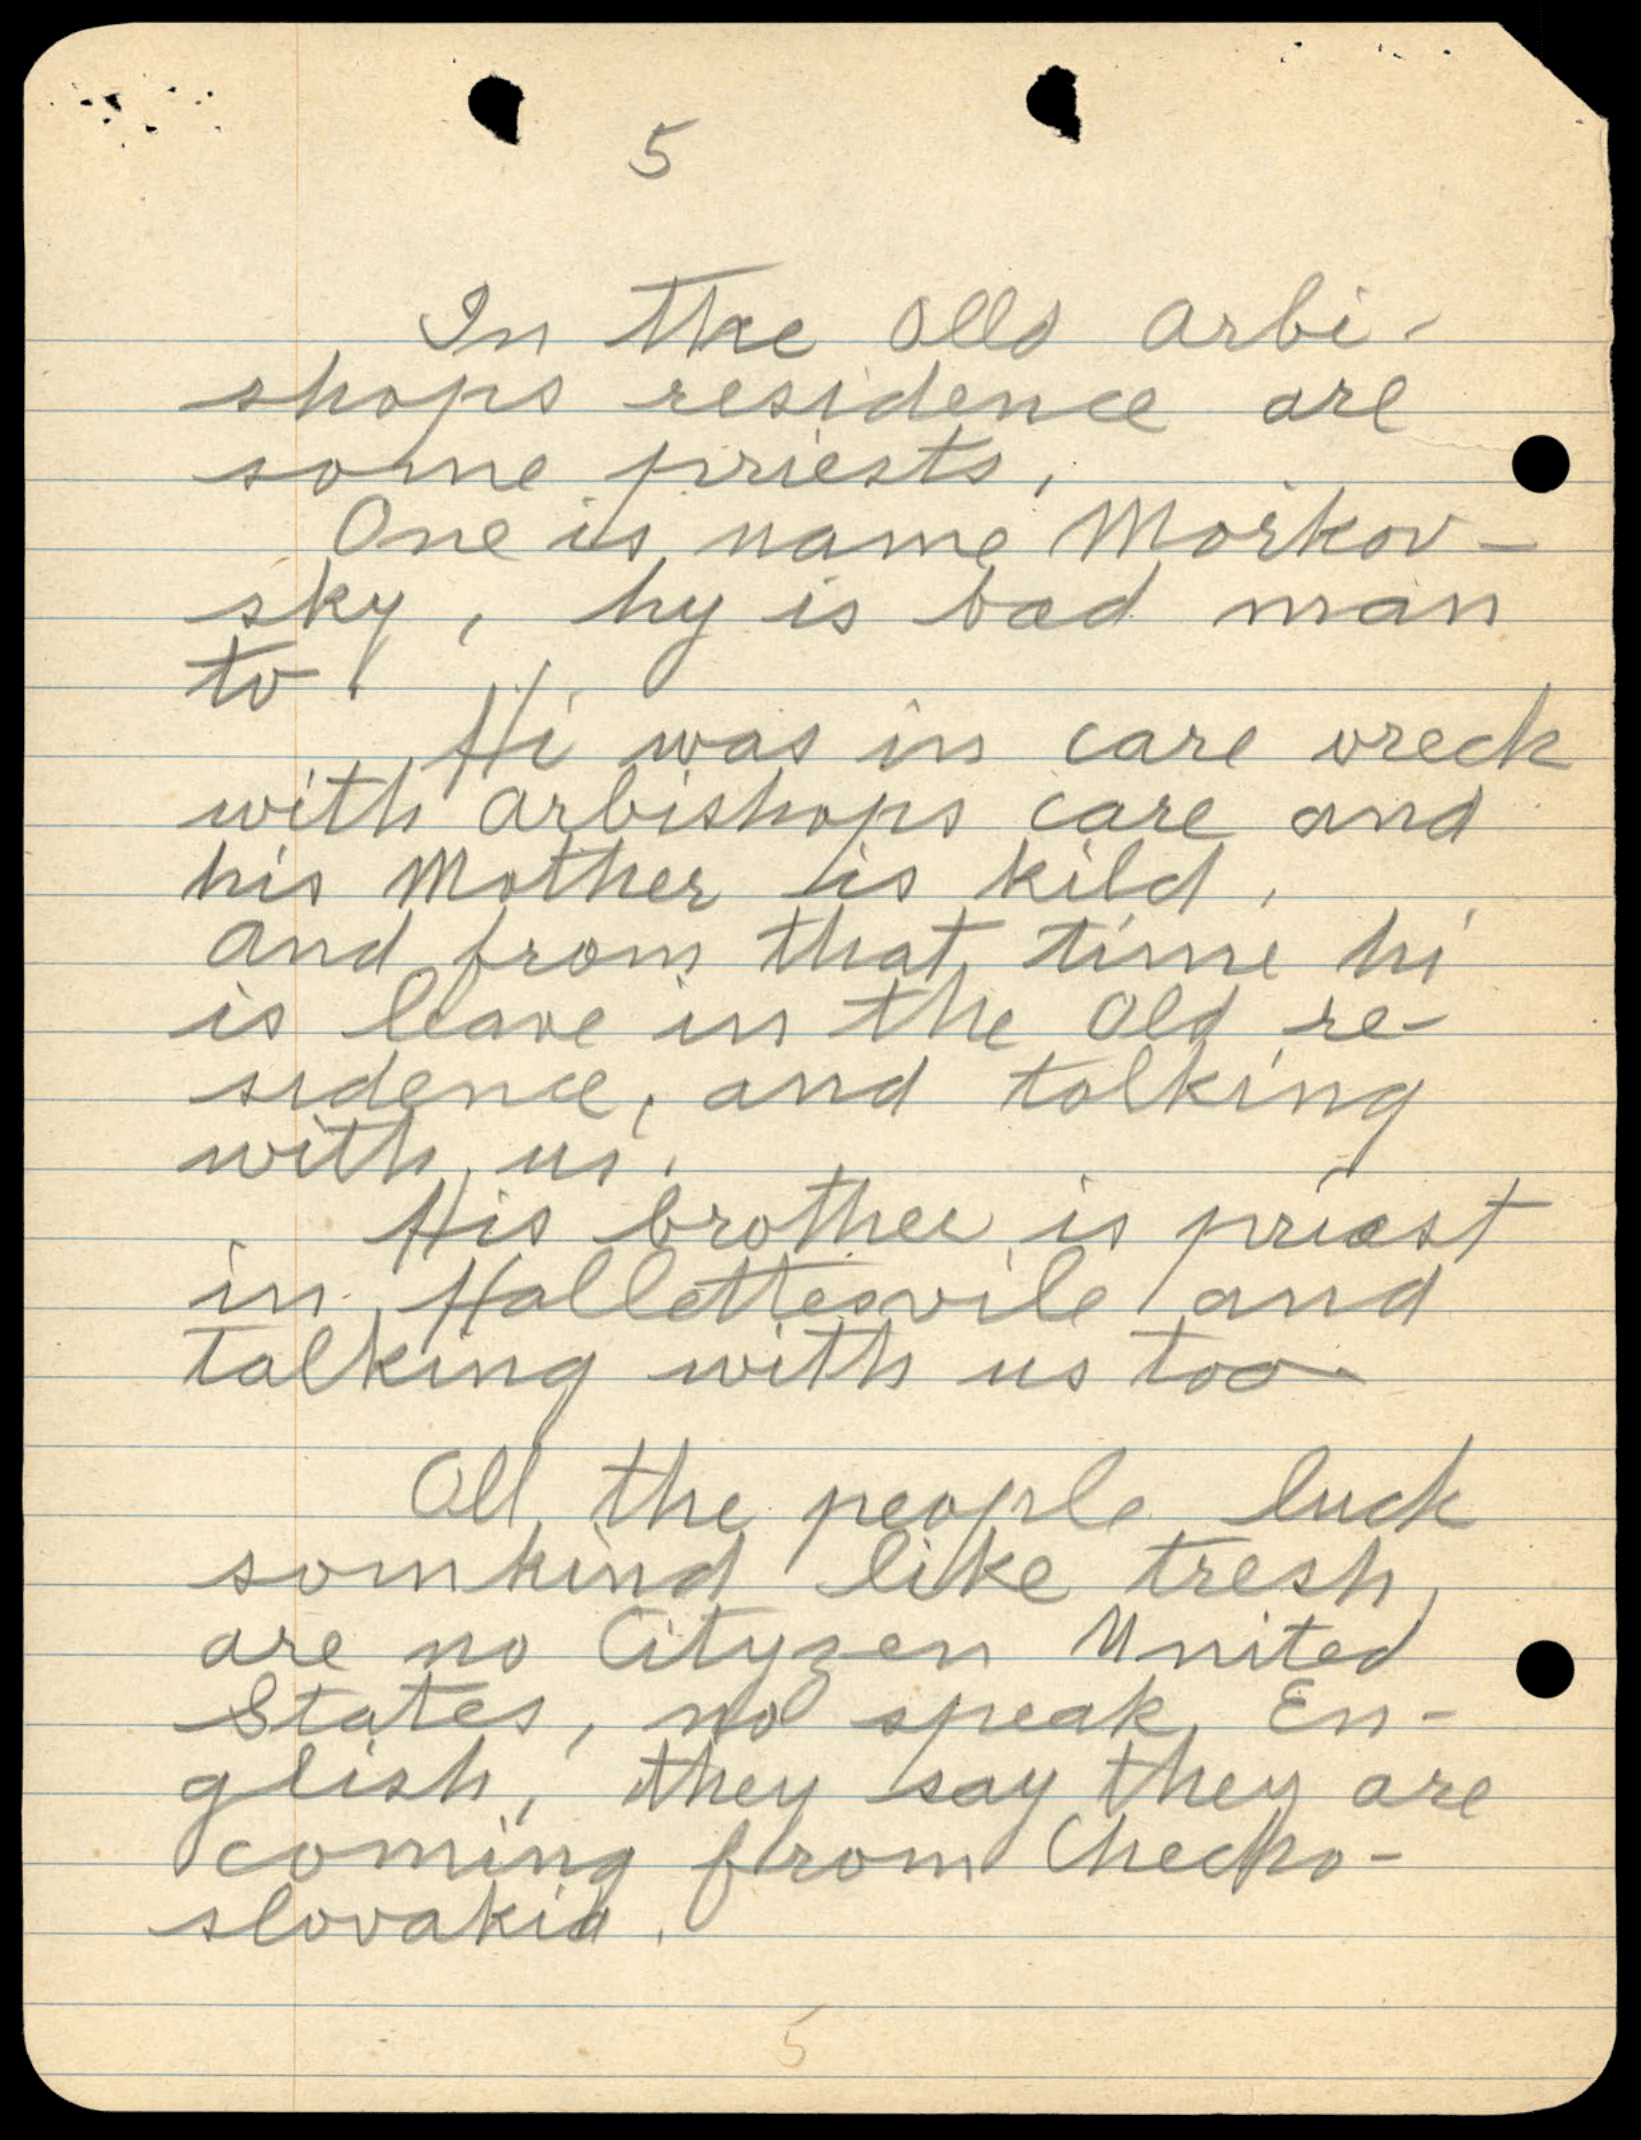 5
In the Olld Arbi-
shops residence are
some priests,
One is name Morkov-
sky, hy is bad man
to.
Hi was in care wreck
with Arbishops care and
his Mother is kild,
And from that time hi
is leave in the Old re-
sidence, and talking
with us.
His brother is priest
in Hallettesvile and
talking with us too
All the people luck
somkind like tresh,
are no Cityzen United
States, no speak En-
glish, they say they are
coming from Checho-
slovakia.
5